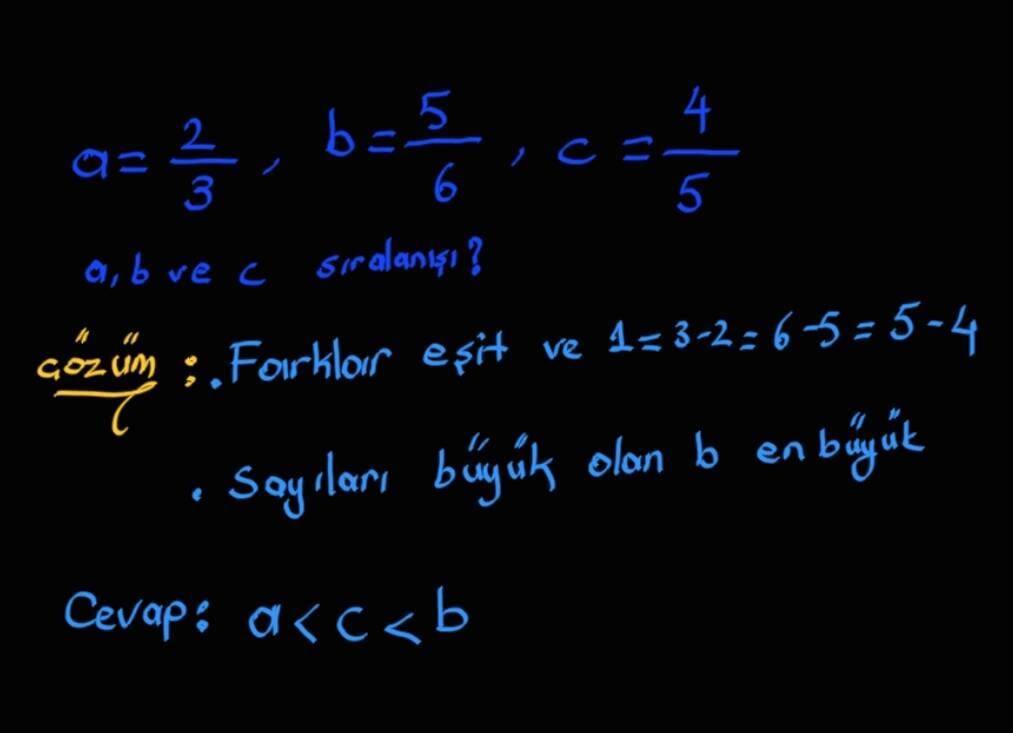 a = 2/3 , b = 5/6 , c = 4/5
a, b ve c sıralanışı?
Çözüm : . Farklar eşit ve 1 = 3-2 = 6-5 = 5-4
. Sayıları büyük olan b en büyük
Cevap: a < c < b